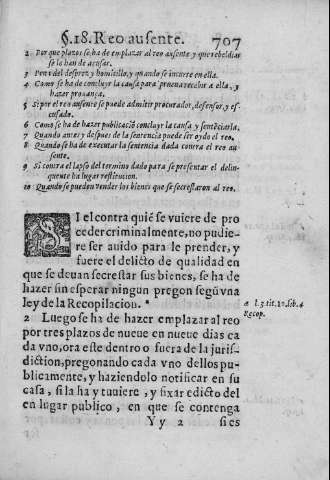 §.18. Reo ausente. 707
2 Por que plazos se ha de emplazar al reo ausente y que rebeldias
se le han de acusar.
3 Pena del desprez y homicillo, y quando se incurre en ella.
4 Como se ha de concluyr la causa para prueua recebir a ella, y
hazer prouança.
5 Si por el reo ausente se puede admitir procurador, defensor, y es-
cusado.
6 Como se ha de hazer publicació concluyr la causa y sentéciarla.
7 Quando antes y despues de la sentencia puede ser oydo el reo.
8 Quando se ha de executar la sentencia dada contra el reo au
sente.
9 Si contra el lapso del termino dado para se presentar el delin-
quente ha lugar restitucion.
10 Quando se pueden vender los bienes que se secrestaron al reo.
SI el contra quié se vuiere de pro
ceder criminalmente, no pudie-
re ser auido para le prender, y
fuere el delicto de qualidad en
que se deuan secrestar sus bienes, se ha de
hazer sin esperar ningun pregon segú vna
ley de la Recopilacion. a
a l. 3. tit. 10. lib. 4
Recop.
2 Luego se ha de hazer emplazar al reo
por tres plazos de nueue en nueue dias ca
da vno, ora este dentro o fuera de la juris-
diction, pregonando cada vno dellos pu-
blicamente, y haziendolo notificar en su
casa, si la ha y tuuiere, y fixar edicto del
en lugar publico, en que se contenga
Y y 2 si es